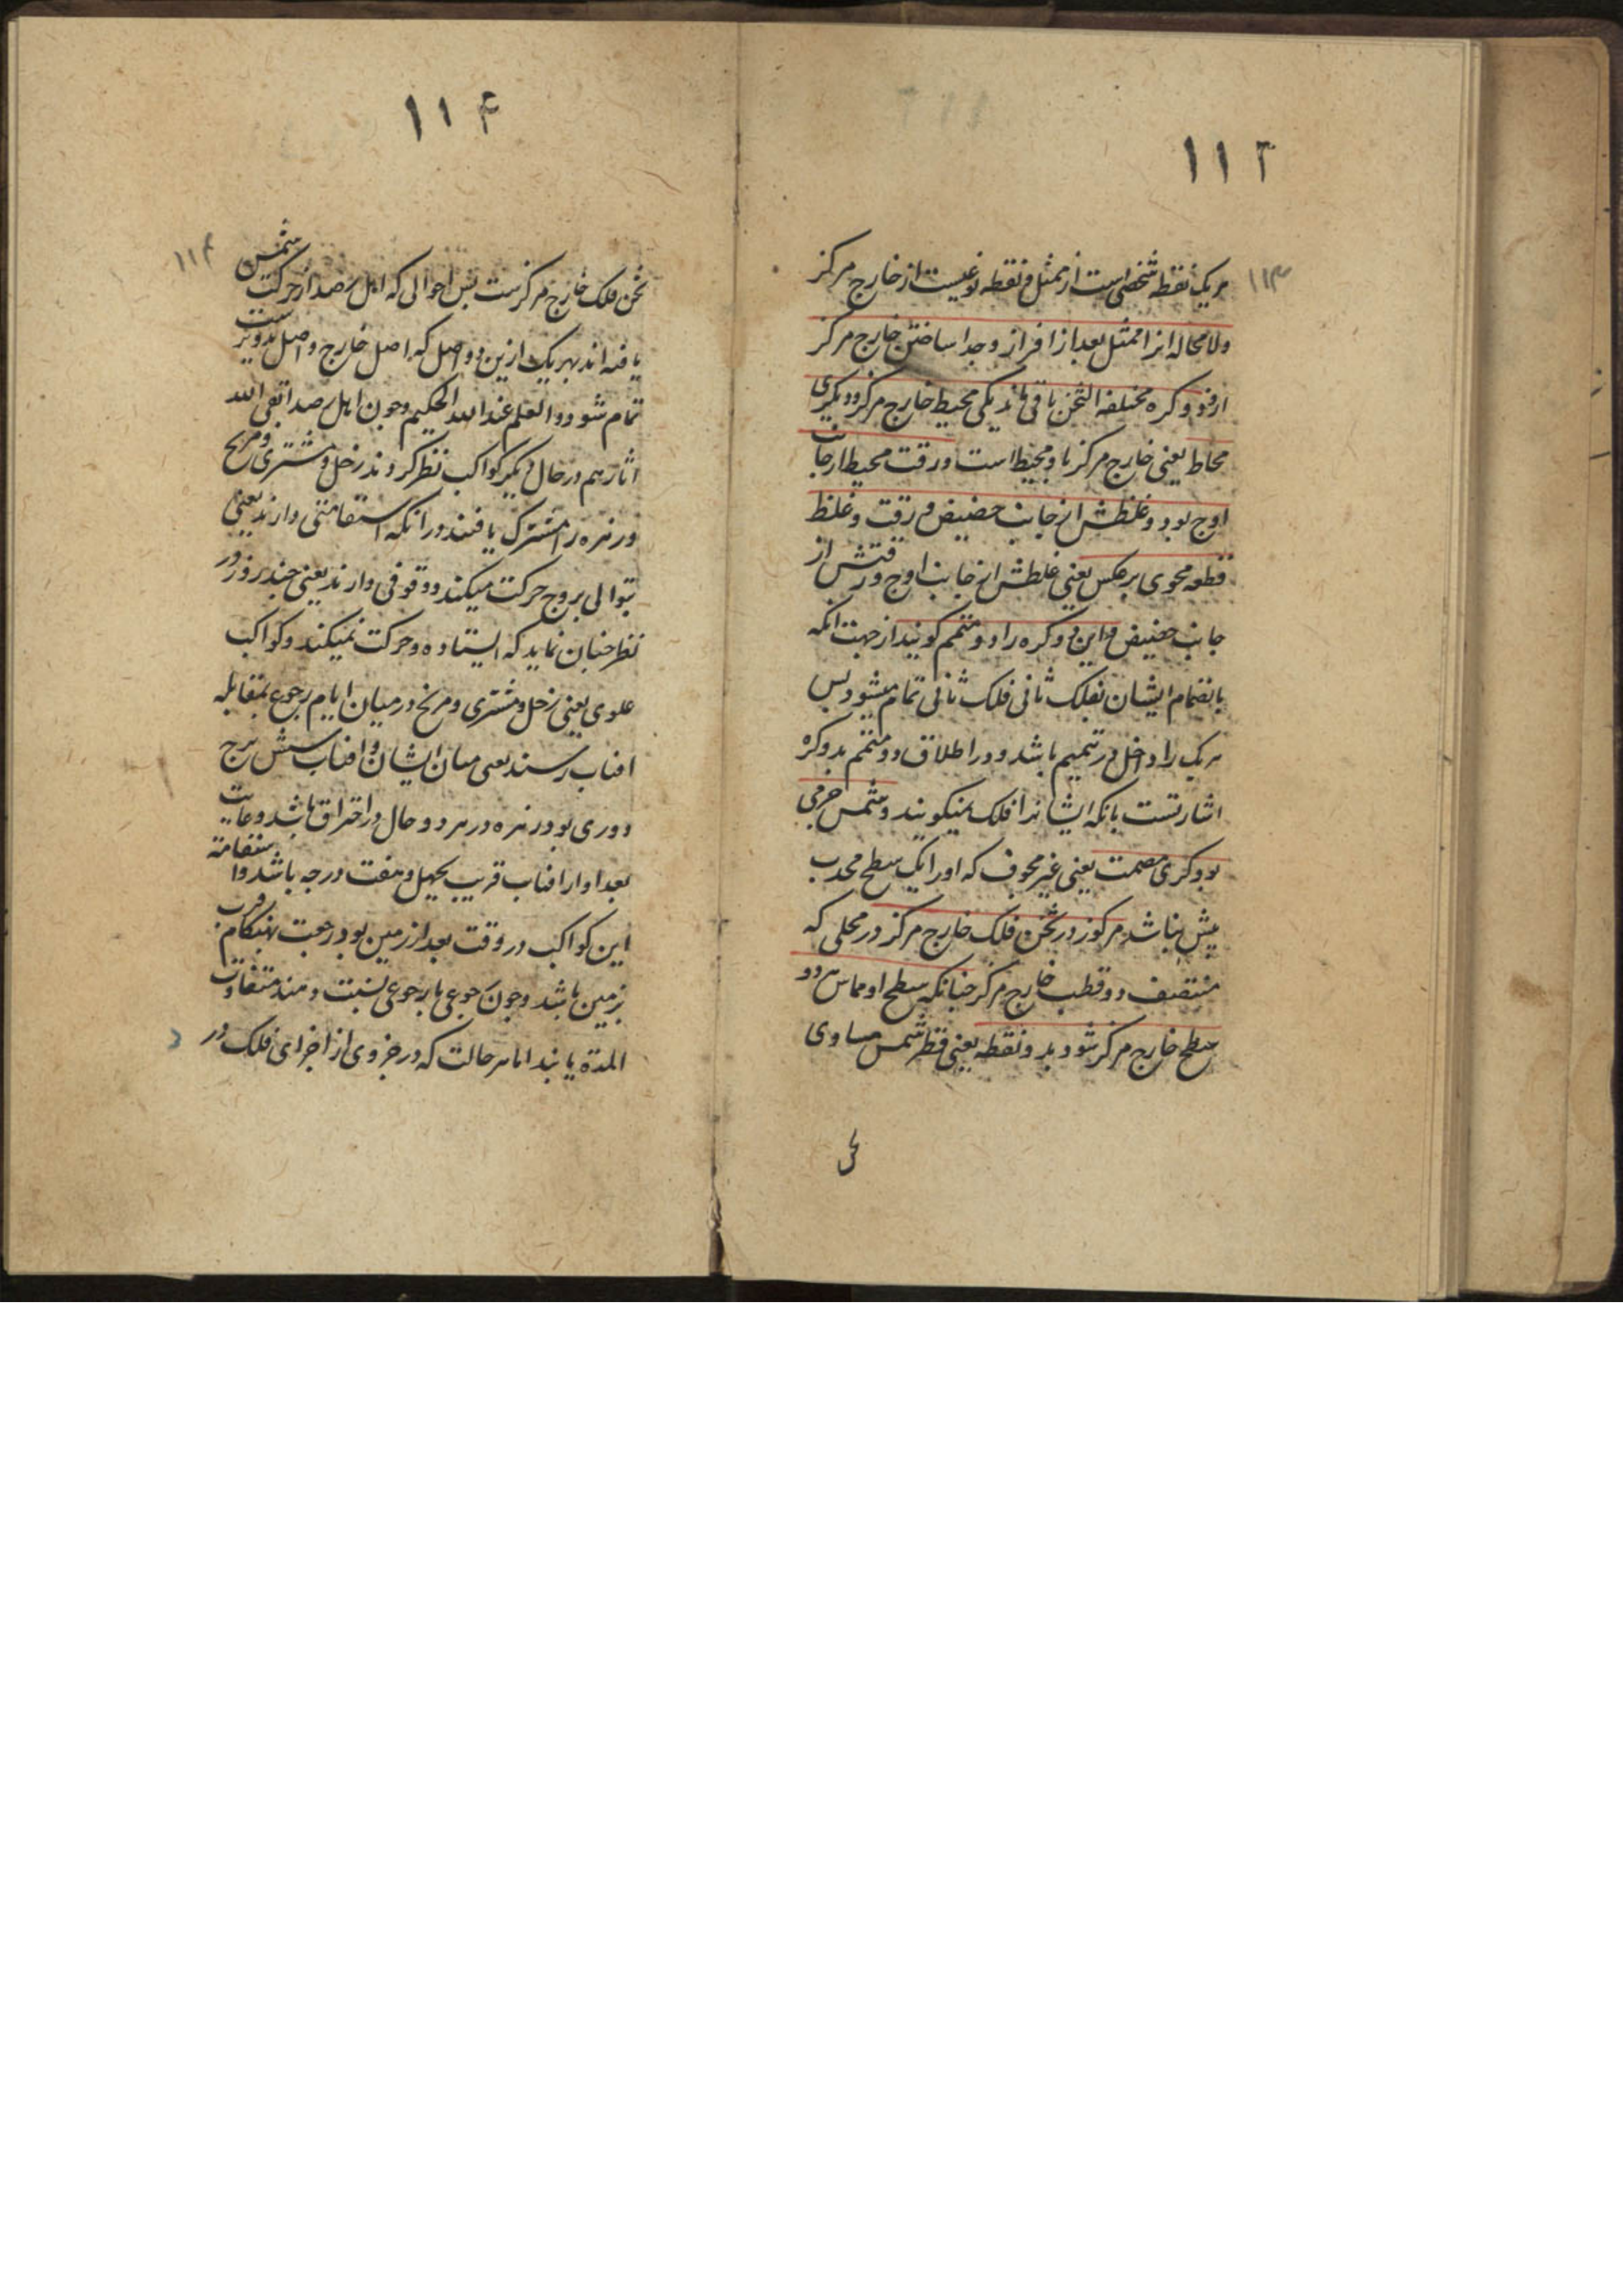 ۱۱۳
۱۱۳
هریک نقطه شخصی است از ممثل و نقطه نوعیست از خارج مرکز
ولامحاله از ممثل بعد از افراز و جدا ساختن خارج مرکز
ازو دو کره مختلفه الثخن باقی ماند یکی محیط خارج مرکز و دیگری
محاط یعنی خارج مرکز باو محیط است ورقت محیط از جانب
اوج بود و غلظش از جانب حضیض و رقت و غلظ
قطعه محوی برعکس یعنی غلظش از جانب اوج و رقتش از
جانب حضیض و این دو کره را دو متمم کویند از جهت انکه
بانضمام ایشان بفلک ثانی فلک ثانی تمام میشود پس
هریک را دخل در تتمیم باشد و در اطلاق دو متمم بدو کره
اشارتست بانکه ایشانرا فلک نمیکویند و شمس جرمی
بود کری مصمت یعنی غیر مجوف که اورا یک سطح محدب
بیش نباشد مرکوز در ثخن فلک خارج مرکز در محلی که
منتصف دو قطب خارج مرکز چنانکه سطح او مماس هر دو
سطح خارج مرکز شود بدو نقطه یعنی قطر شمس مساوی
۱۱۴
۱۱۴
ثخن فلک خارج مرکزست پس احوالی که اهل رصد از حرکت شمس
یافته اند بهریک ازین دو اصل که اصل خارج و اصل تدویرست
تمام شود والعلم عند الله الحکیم و چون اهل رصد ابقی الله
اثارهم در حال دیگر کواکب نظر کردند زحل و مشتری و مریخ
و زهره را مشترک یافتند در انکه استقامتی دارند یعنی
بتوالی بروج حرکت میکنند و وقوفی دارند یعنی چند روز در
نظر چنان نماید که ایستاده و حرکت نمیکنند و کواکب
علوی یعنی زحل و مشتری و مریخ در میان ایام رجوع بمقابله
افتاب رسند یعنی میان ایشان و افتاب شش برج
دوری بود و زهره در هر دو حال در احتراق باشد و غایت
بعد او از افتاب قریب بچهل و هفت درجه باشد و استقامة
این کواکب در وقت بعد از زمین بود و رجعت بهنکام قرب
بزمین باشد و چون رجوعی با رجوعی نسبت دهند متفاوت
المدة یابند اما هر حالت که در جزوی از اجزای فلک در